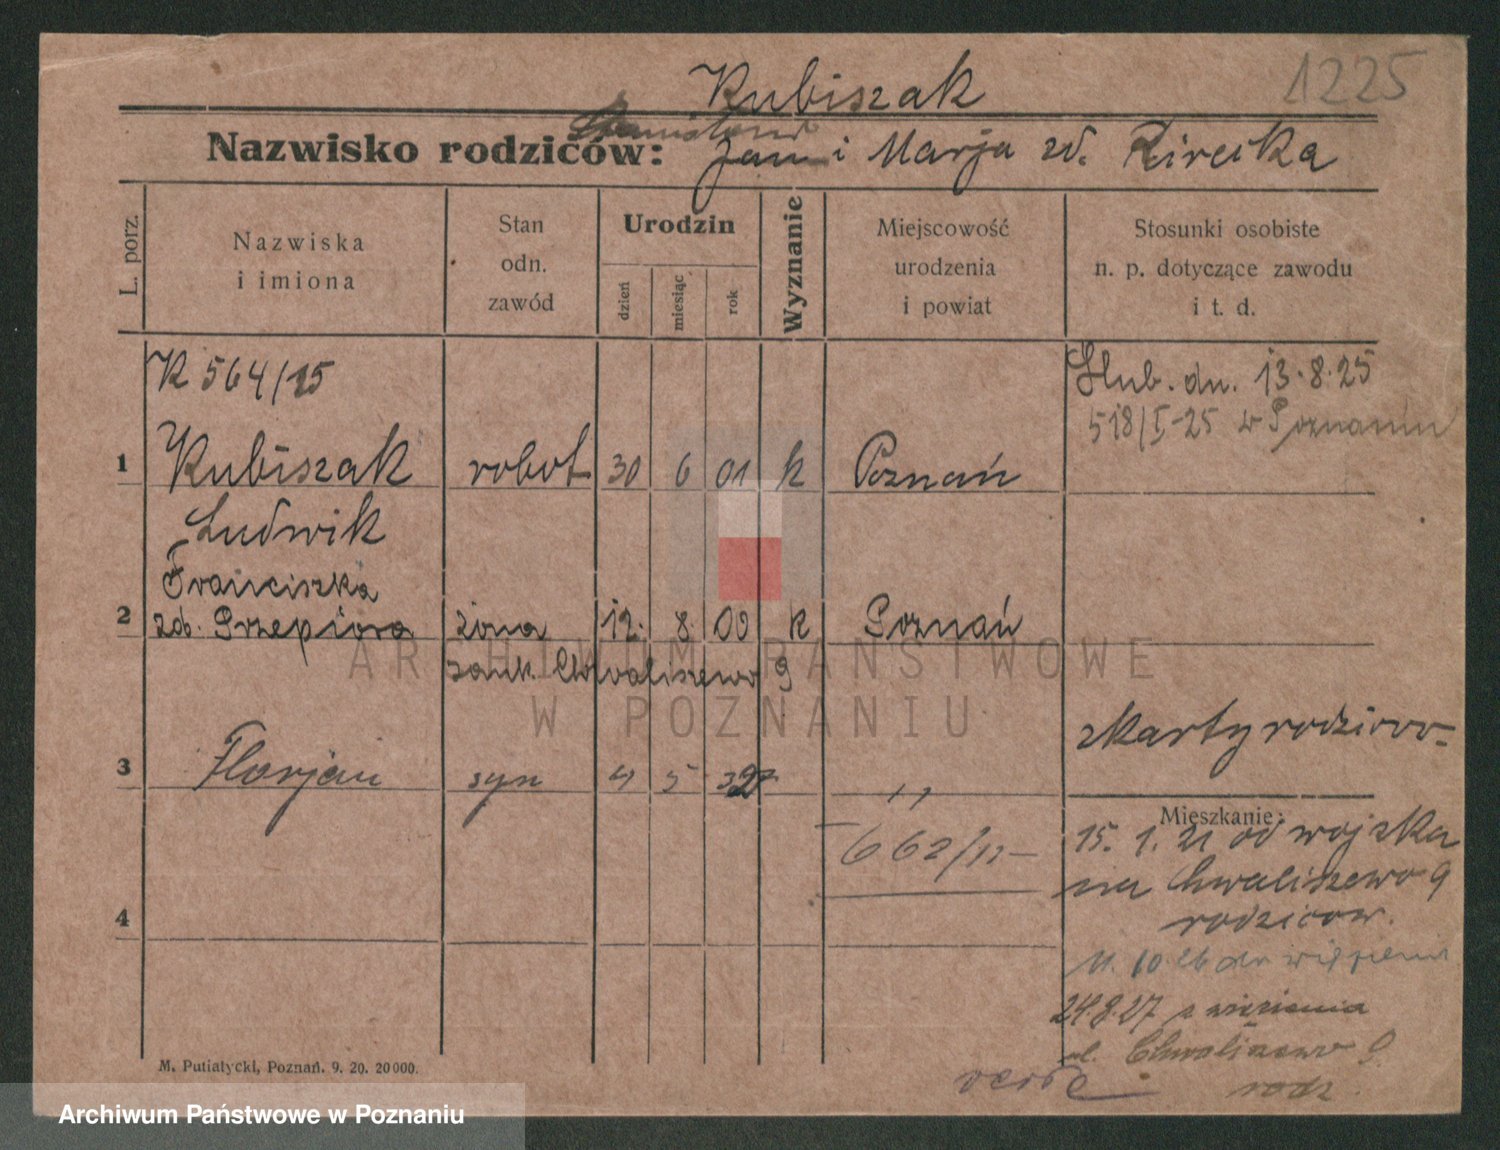 Kubiszak
1225
Nazwisko rodziców: Jan i Marja zd.
L. porz.
Nazwiska
i imiona
Stan
odn.
zawód
Urodzin
dzień
miesiąc
rok
Wyznanie
Miejscowość
urodzenia
i powiat
Stosunki osobiste
n. p. dotyczące zawodu
i t. d.
K 564/15
Ślub. dn. 13.8.25
518/I-25 w Poznaniu
1 Kubiszak robot 30 6 01 k Poznań
Ludwik
Franciszka
2 zd. Przepióra żona 12. 8 00 k Poznań
zamk. Chwaliszewo 9
z karty rodziców
3 Florjan syn 4 5 32 "
Mieszkanie:
662/11
15. 1. 21 od wojska
na Chwaliszewo 9
rodziców.
4
11. 10 26 do więzienia
24.8.27 z więzienia
ul. Chwaliszewo 9
rodz.
verte
M. Putiatycki, Poznań. 9. 20. 20 000.
ARCHIWUM PAŃSTWOWE
W POZNANIU
Archiwum Państwowe w Poznaniu